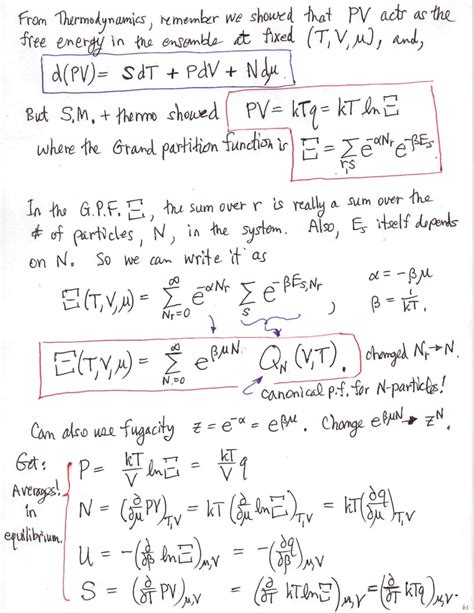 From Thermodynamics, remember we showed that PV acts as the
free energy in the ensemble at fixed (T,V,μ), and,
d(PV) = SdT + PdV + Ndμ
But S.M. + thermo showed PV = kTq = kT ln Ξ
where the Grand partition function is Ξ = Σ_{r,s} e^{-αN_r} e^{-βE_s}
In the G.P.F. Ξ, the sum over r is really a sum over the
# of particles, N, in the system. Also, E_s itself depends
on N. So we can write it as
Ξ(T,V,μ) = Σ_{N_r=0}^{∞} e^{-αN_r} Σ_s e^{-βE_{s,N_r}} , α = -βμ
β = 1/kT.
Ξ(T,V,μ) = Σ_{N=0}^{∞} e^{βμN} Q_N (V,T). changed N_r → N.
canonical p.f. for N-particles!
Can also use fugacity z = e^{-α} = e^{βμ}. Change e^{βμN} → z^N.
Get:
Averages!
in
equilibrium.
P = kT/V ln Ξ = kT/V q
N = (∂/∂μ PV)_{T,V} = kT (∂/∂μ ln Ξ)_{T,V} = kT (∂q/∂μ)_{T,V}
U = -(∂/∂β ln Ξ)_{μ,V} = -(∂q/∂β)_{μ,V}
S = (∂/∂T PV)_{μ,V} = (∂/∂T kT ln Ξ)_{μ,V} = (∂/∂T kTq)_{μ,V}